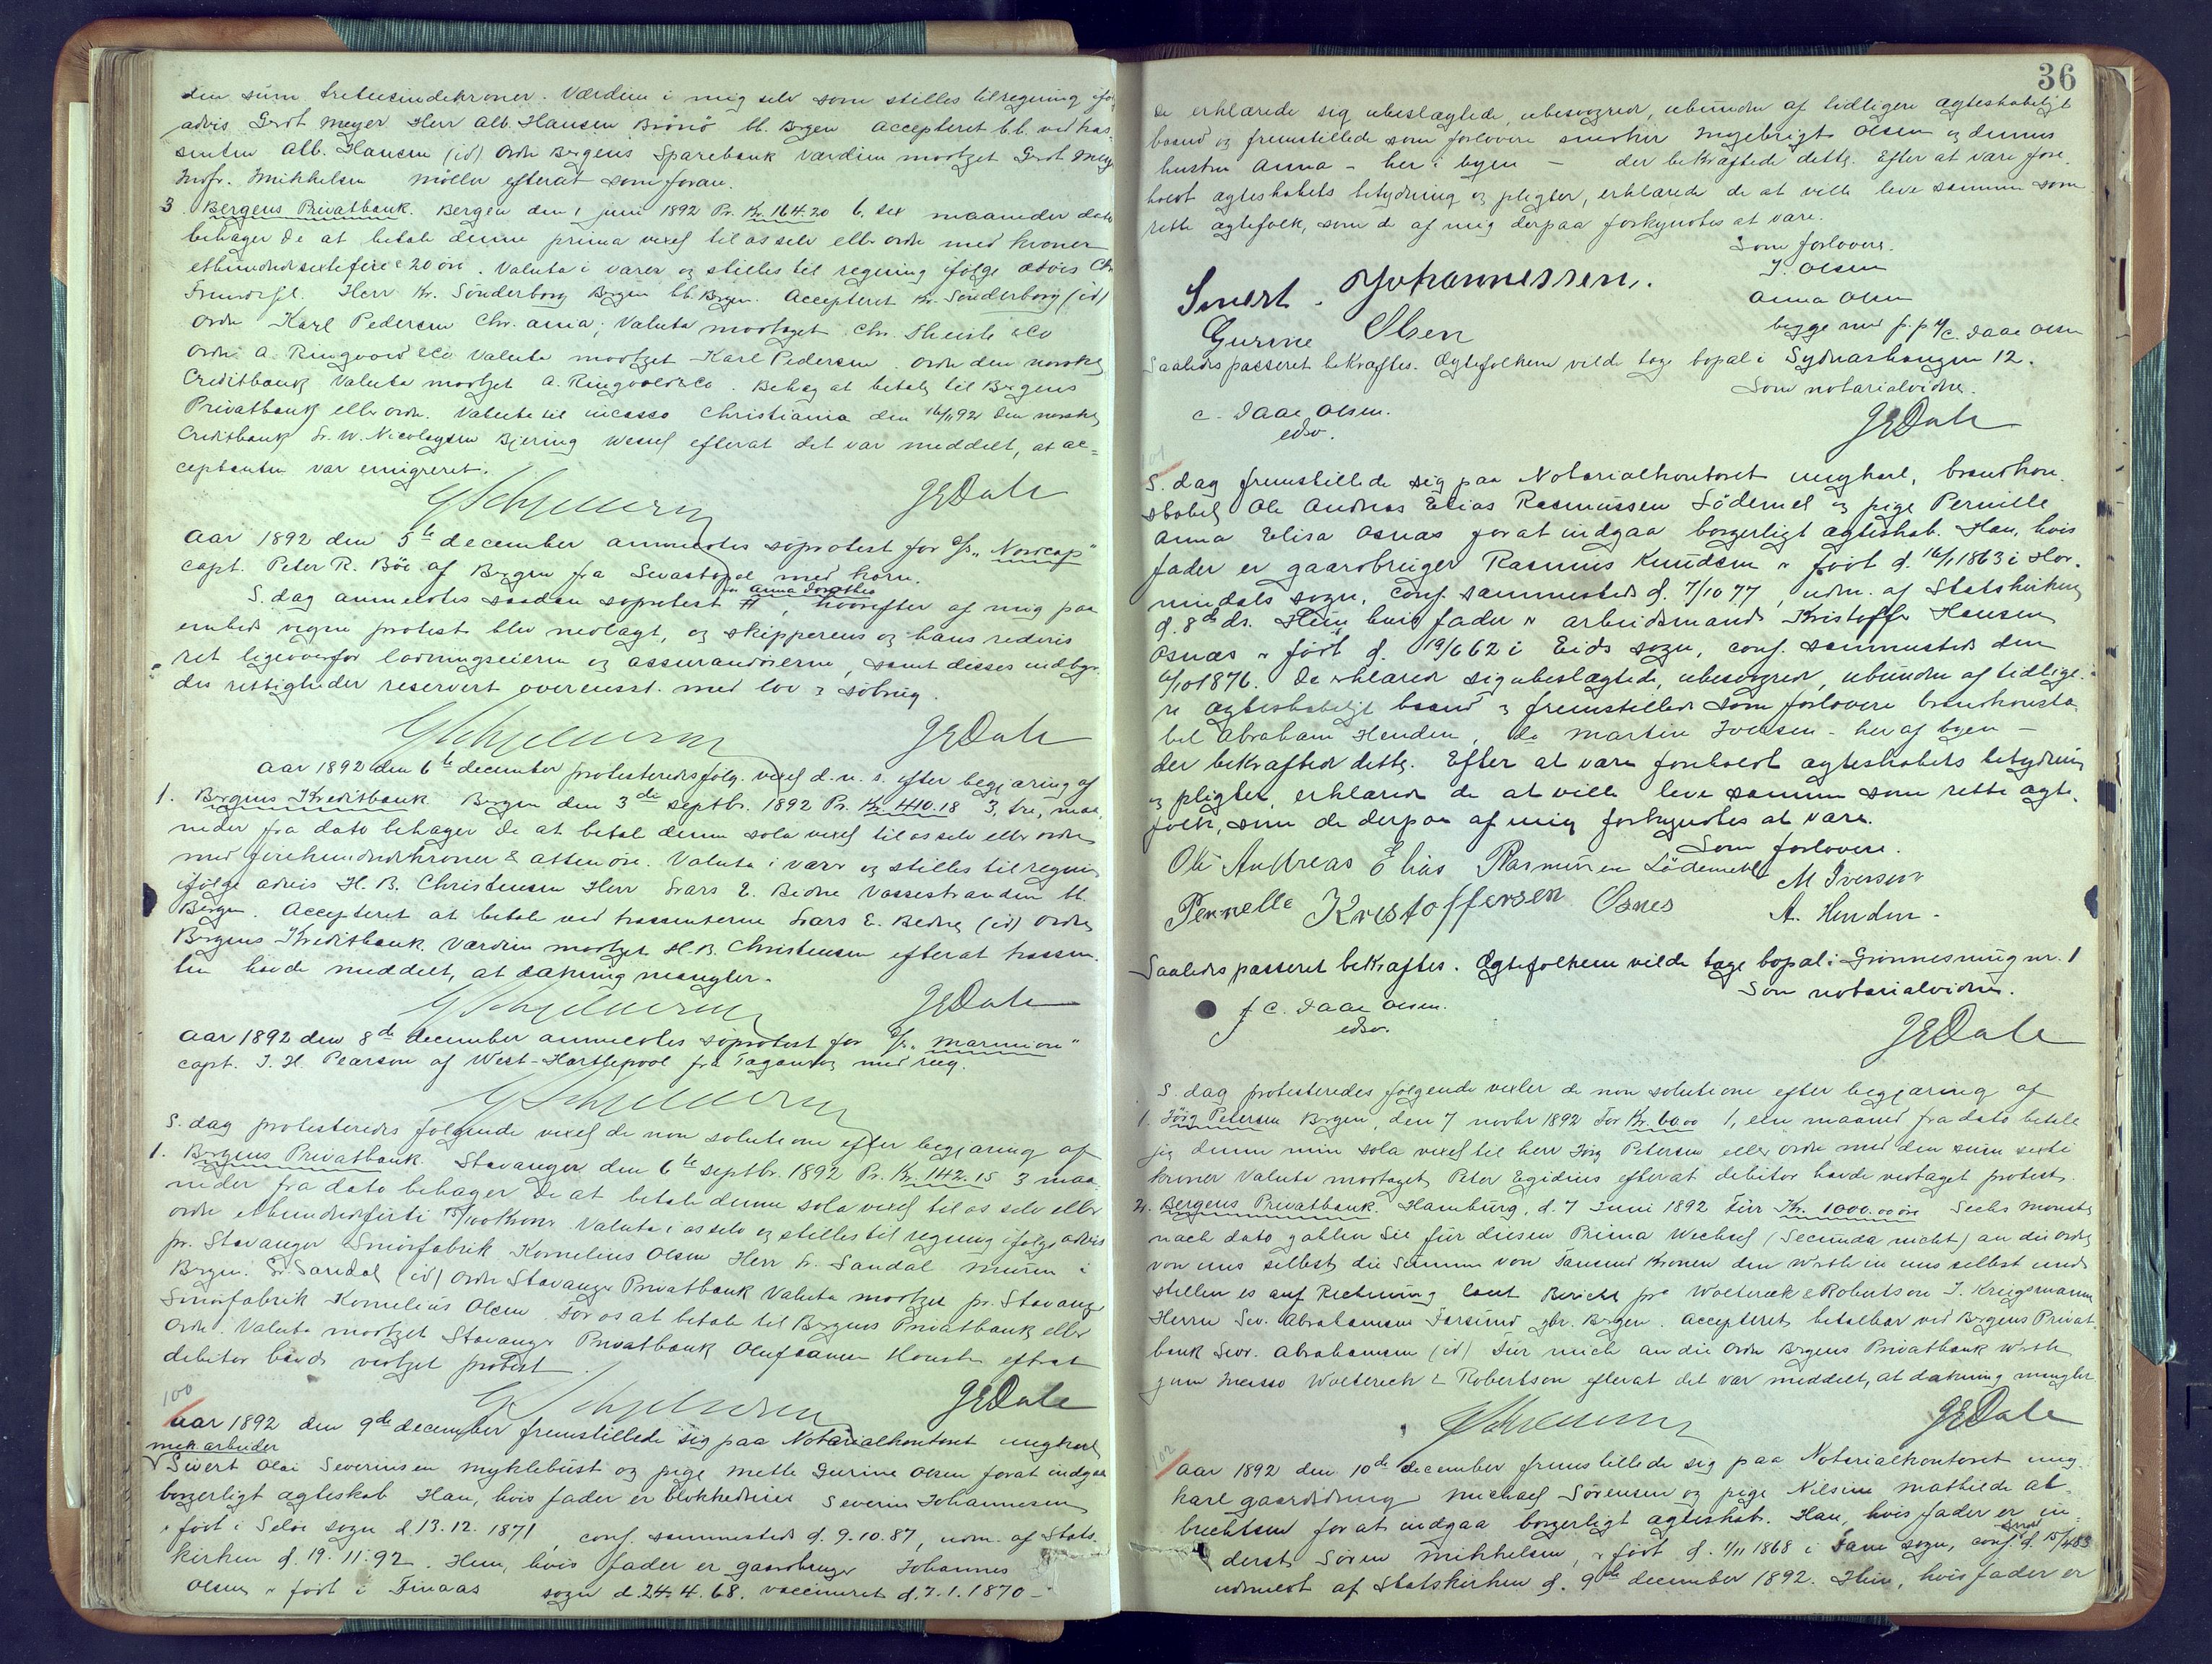 den sum tretusindekroner. Værdien i mig selv som stilles til regning ifø
advis Gerdt Meyer Herr Alb. Hansen Brönö bl. Bergen Accepteret b.b. ved tras-
senten Alb. Hansen (id) Ordre Bergens Sparebank Værdien modtget Gerdt Mey
Indf. Mikkelsen Möller efterat som foran.
3. Bergens Privatbank. Bergen den 1 juni 1892 Pr. Kr. 164.20 6, sex maaneder dato
behager De at betale denne prima vexel til os selv eller ordre med kroner
ethundredesextifire & 20 öre. Valuta i varer og stilles til regning ifölge advis Chr.
Herr Kr. Sönderborg Bergen bl. Bergen. Accepteret Kr. Sönderborg (id)
Ordre Karl Pedersen Chr.ania; Valuta modtaget Chr. Theiste & Co
Ordre A. Ringvold & Co Valuta modtget Karl Pedersen. Ordre den norske
Creditbank Valuta modtget A. Ringvold & Co. Behag at betale til Bergens
Privatbank eller ordre. Valuta til incasso Christiania den 16/11 92 Den norske
Creditbank Fr. W. Nicolaysen Bjering Wessel efterat det var meddelt, at ac-
ceptanten var emigreret.
GEDahl
Aar 1892 den 5te december anmeldtes söprotest for S/s „Nordcap"
capt. Peter R. Böe af Bergen fra Sevastopol med korn.
for Anna Dorothea
S. dag anmeldtes saadan söprotest #, hvorefter af mig paa
embeds vegne protest blev nedlagt, og skipperens og hans rederis
ret ligeoverfor ladningseierne og assurandörerne, samt disses indbyr-
des rettigheder reservert overensst. med lov & söbrug.
GEDahl
Aar 1892 den 6te december protesteredes fölg. vexel d. n. s. efter begjæring af
1. Bergens Kreditbank Bergen den 3de septbr. 1892 Pr. Kr. 410.18 3, tre, maa-
neder fra dato behager De at betale denne sola vexel til os selv eller ordre
med firehundredetikroner & atten öre. Valuta i varer og stilles til regning
ifölge advis H. B. Christensen Herr Lars E. Bedne Vossestranden bl.
Bergen. Accepteret at betale ved trassenterne Lars E. Bedne (id) Ordre
Bergens Kreditbank Værdien modtget H. B. Christensen efterat trassen-
ten havde meddelt, at dækning mangler.
GEDahl
Aar 1892 den 8de december anmeldtes söprotest for S/s „Marmion"
capt. J. H. Pearson af West-Hartlepool fra Taganrog med rug.
S. dag protesteredes fölgende vexel de non solutione efter begjæring af
1. Bergens Privatbank. Stavanger den 6te septbr. 1892 Pr. Kr. 142.15 3 maa-
neder fra dato behager De at betale denne sola vexel til os selv eller
ordre ethundredefirti 15/100 Kroner. Valuta i os selv og stilles til regning ifölge advis
pr. Stavanger Smörfabrik Kornelius Olsen Herr L. Sandal Muren i
Bergen. L. Sandal (id) Ordre Stavanger Privatbank Valuta modtget pr. Stavanger
Smörfabrik Kornelius Olsen. For os at betale til Bergens Privatbank eller
ordre. Valuta modtget Stavanger Privatbank Oluf Aanen Housken efterat
debitor havde vedtget protest.
GEDahl
100
Aar 1892 den 9de december fremstillede sig paa Notarialkontoret ungkarl
mek. arbeider
Sivert Olai Severinsen Myklebust og pige Mette Gurine Olsen forat indgaa
borgerligt ægteskab. Han, hvis fader er Severin Johannesen
er födt i Selöe sogn d. 13.12.1871, conf. sammesteds d. 9.10.87, udm. af Stats-
kirken d. 19.11.92. Hun, hvis fader er gaardbruger Johannes
Olsen er födt i Finaas sogn d. 24.4.68. vaccineret d. 7.1.1870 -
36
De erklærede sig ubeslægtede, ubesvogrede, ubundne af tidligere ægteskabeligt
baand og fremstillede som forlovere snedker Ingebrigt Olsen og dennes
hustru Anna - her i byen - der bekræftede dette. Efter at være fore-
holdt ægteskabets betydning og pligter, erklærede de at ville leve sammen som
rette ægtefolk, som de af mig derpaa forkyndtes at være.
Som forlovere.
I. Olsen
Sivert. Johannessen.
Anna Olsen
Gurine Olsen
begge med p. p. v/ C. Daae Olsen
Saaledes passeret bekræftes. Ægtefolkene vilde tage bopæl i Sydnæshaugen 12.
Som notarialvidne.
C. Daae Olsen.
edsv.
GEDahl
101
S. dag fremstillede sig paa Notarialkontoret ungkarl, brandkon-
stabel Ole Andreas Elias Rasmussen Lödemel og pige Pernille
Anna Elisa Osnæs forat indgaa borgerligt ægteskab. Han, hvis
fader er gaardbruger Rasmus Knudsen er födt d. 16/1 1863 i Hor-
nindals sogn, conf. sammesteds d. 7/10 77, udm. af Statskirken
d. 8de ds. Hun hvis fader er arbeidsmand Kristoffer Hansen
Osnæs er födt d. 19/6 62 i Eids sogn, conf. sammesteds den
6/10 1876. De erklærede sig ubeslægtede, ubesvogrede, ubundne af tidlige-
re ægteskabeligt baand & fremstillede som forlovere brandkonsta-
bel Abraham Henden, do Martin Iversen - her af byen -
der bekræftede dette. Efter at være foreholdt ægteskabets betydning
og pligter, erklærede de at ville leve sammen som rette ægte-
folk, som de derpaa af mig forkyndtes at være.
Som forlovere.
Ole Andreas Elias Rasmussen Lödemehl
M Iversen
Pernelle Kristoffersen Osnes
A. Henden.
Saaledes passeret bekræftes. Ægtefolkene vilde tage bopæl i Grönnesmug nr. 1
Som notarialvidne.
f C. Daae Olsen.
edsv.
GEDahl
S. dag protesteredes fölgende vexler de non solutione efter begjæring af
1. Jörg Petersen Bergen, den 7 novbr 1892 For Kr. 60.00 1, een maaned fra dato betale
jeg denne min sola vexel til herr Jörg Petersen eller ordre med den sum sexti
kroner Valuta modtaget, Peter Egidius efterat debitor havde vedtaget protest.
2. Bergens Privatbank. Hamburg, d. 7 Juni 1892 Für Kr. 1000.00 öre Sechs Monate
nach dato zahlen Sie für diesen Prima Wechsel (Secunda nicht) an die Ordre
von uns selbst die Summe von Tausend Kronen den Werth in uns selbst und
stellen es auf Rechnung laut Bericht pr. Woltereck & Robertson J. Kriegsmann
Herrn Sev. Abrahamsen Farsund pr. Bergen. Accepteret betalbar ved Bergens Privat-
bank Sev. Abrahamsen (id) Für mich an die Ordre Bergens Privatbank Werth
zum Incasso Woltereck & Robertson efterat det var meddelt, at dækning mangler.
GEDahl
102
Aar 1892 den 10de december fremstillede sig paa Notarialkontoret ung-
karl gaarddreng Michael Sörensen og pige Nilsine Mathilde Al-
brechtsen forat indgaa borgerligt ægteskab. Han, hvis fader er in-
derst Sören Mikkelsen, er födt d. 1/11 1868 i Fane sogn, conf. smst d. 15/4 83
udmeldt af Statskirken d. 9de december 1892. Hun, hvis fader er